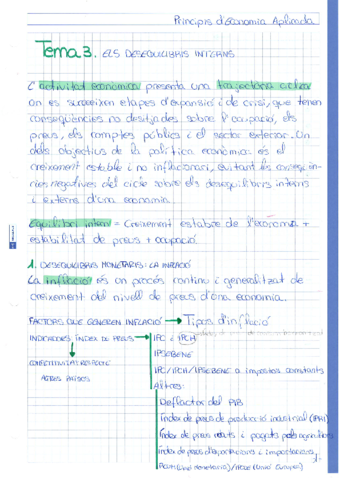 Principis d'Economia Aplicada
Tema 3. ELS DESEQUILIBRIS INTERNS
L'activitat econòmica presenta una trajectòria cíclica
on es succeeixen etapes d'expansió i de crisi, que tenen
conseqüències no desitjades sobre l'ocupació, els
preus, els comptes públics i el sector exterior. Un
dels objectius de la política econòmica és el
creixement estable i no inflacionari, evitant les conseqüèn-
cies negatives del cicle sobre els desequilibris interns
i externs d'una economia.
Equilibri intern = Creixement estable de l'economia +
estabilitat de preus + ocupació
1. DESEQUILIBRIS MONETARIS: LA INFLACIÓ
La inflació és un procés continu i generalitzat de
creixement del nivell de preus d'una economia.
FACTORS QUE GENEREN INFLACIÓ → Tipos d'inflació
INDICADORS ÍNDEX DE PREUS → IPC i IPCH
IPSEBENE
COMPETITIVITAT RESPECTE IPC/IPCH/IPSEBENE a impostos constants
ALTRES PAÏSOS Altres:
Deflactor del PIB
Índex de preus de producció industrial (IPRI)
Índex de preus rebuts i pagats pels agricultors
Índex de preus d'exportacions i importacions
(Unió Monetària)/ (Unió Europea)